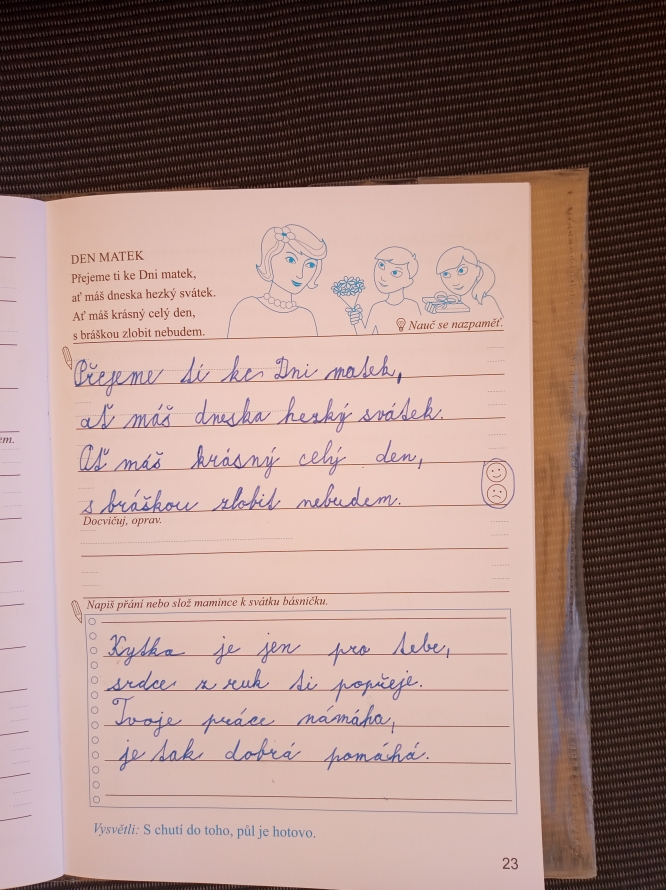 DEN MATEK
Přejeme ti ke Dni matek,
ať máš dneska hezký svátek.
Ať máš krásný celý den,
s bráškou zlobit nebudem.
Nauč se nazpaměť.
Přejeme ti ke Dni matek,
ať máš dneska hezký svátek.
Ať máš krásný celý den,
s bráškou zlobit nebudem.
Docvičuj, oprav.
Napiš přání nebo slož mamince k svátku básničku.
Kytka je jen pro tebe,
srdce z ruk ti popřeje.
Tvoje práce námáha,
je tak dobrá pomáhá.
Vysvětli: S chutí do toho, půl je hotovo.
23
em.